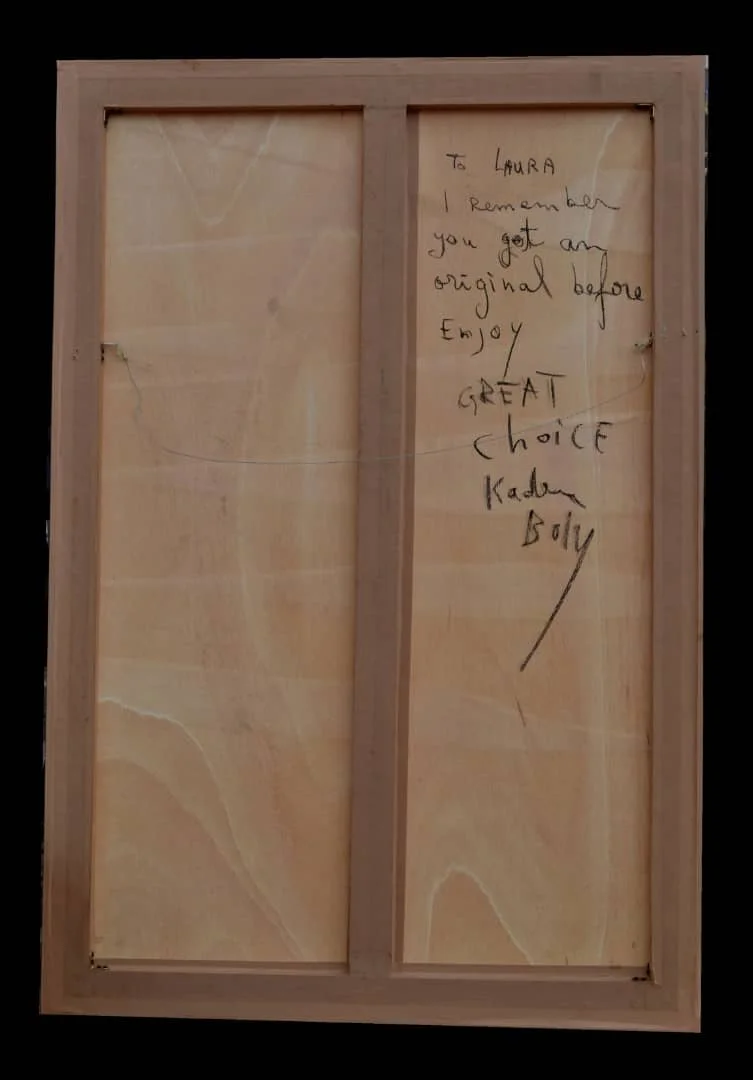 To LAURA
I remember
you got an
original before
ENJOY
GREAT
choicE
Kadem
Boly